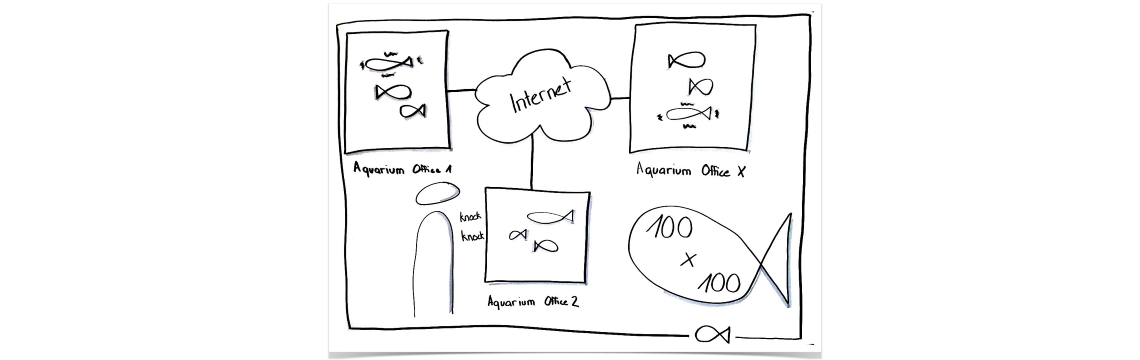 Internet
Aquarium Office 1
Aquarium Office X
knock
knock
100
x
100
Aquarium Office 2